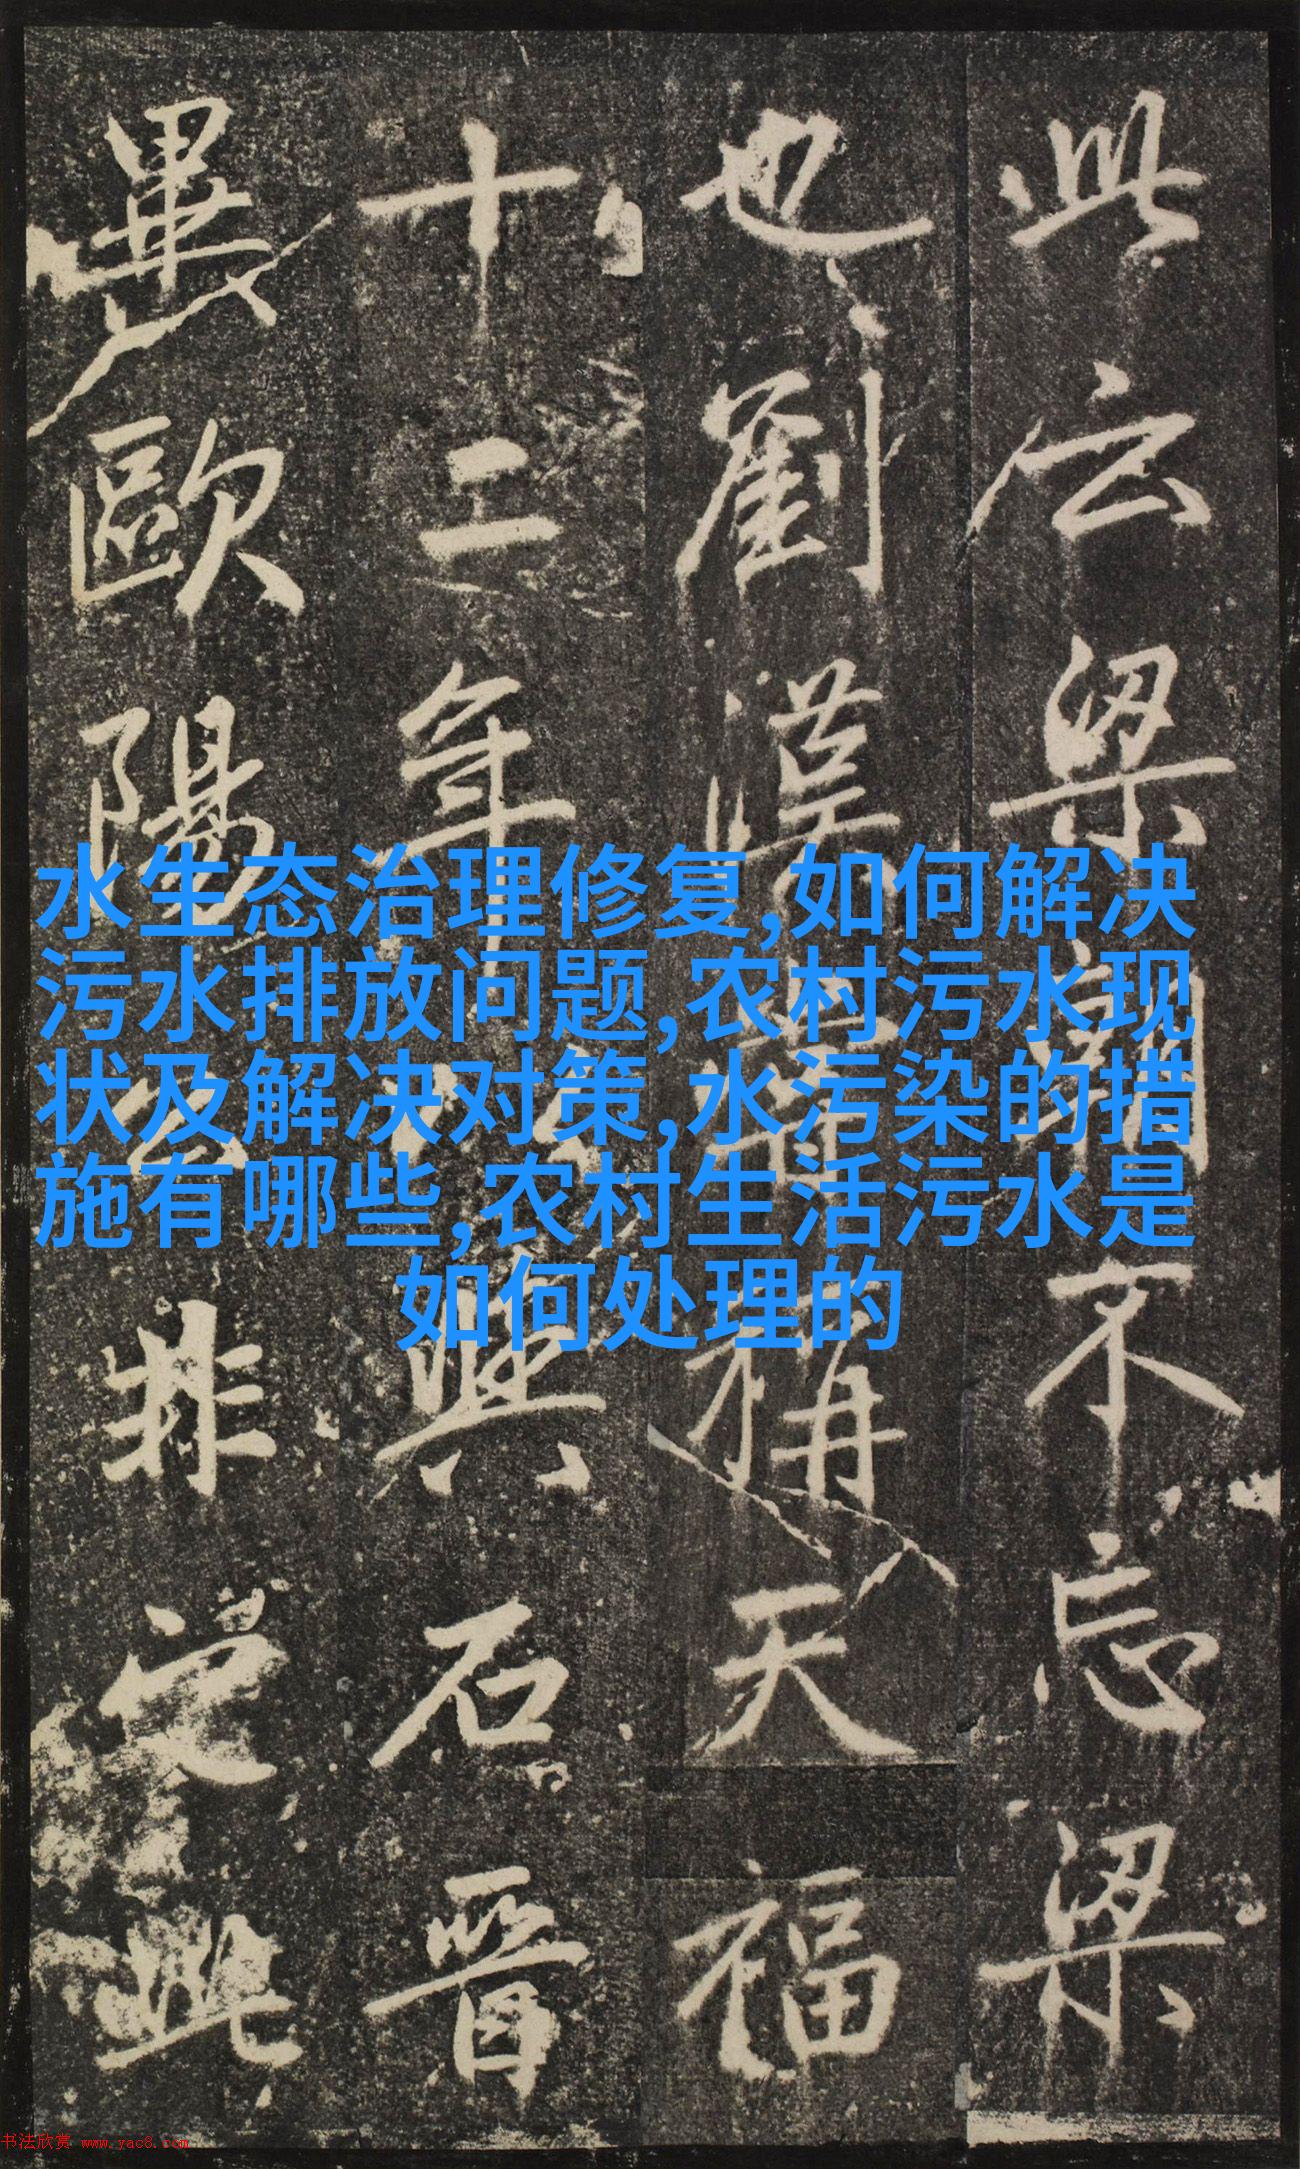 此雲梁朝不忘梁
也劉漢
稱天福
十二年
與石晉
畢歐陽公非之此
水生态治理修复,如何解决
污水排放问题,农村污水现
状及解决对策,水污染的措
施有哪些,农村生活污水是
如何处理的
书法欣赏 www.yac8.com